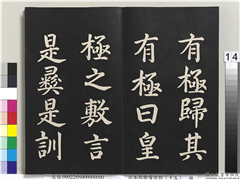 有極歸其
有極曰皇
極之敷言
是彝是訓
14